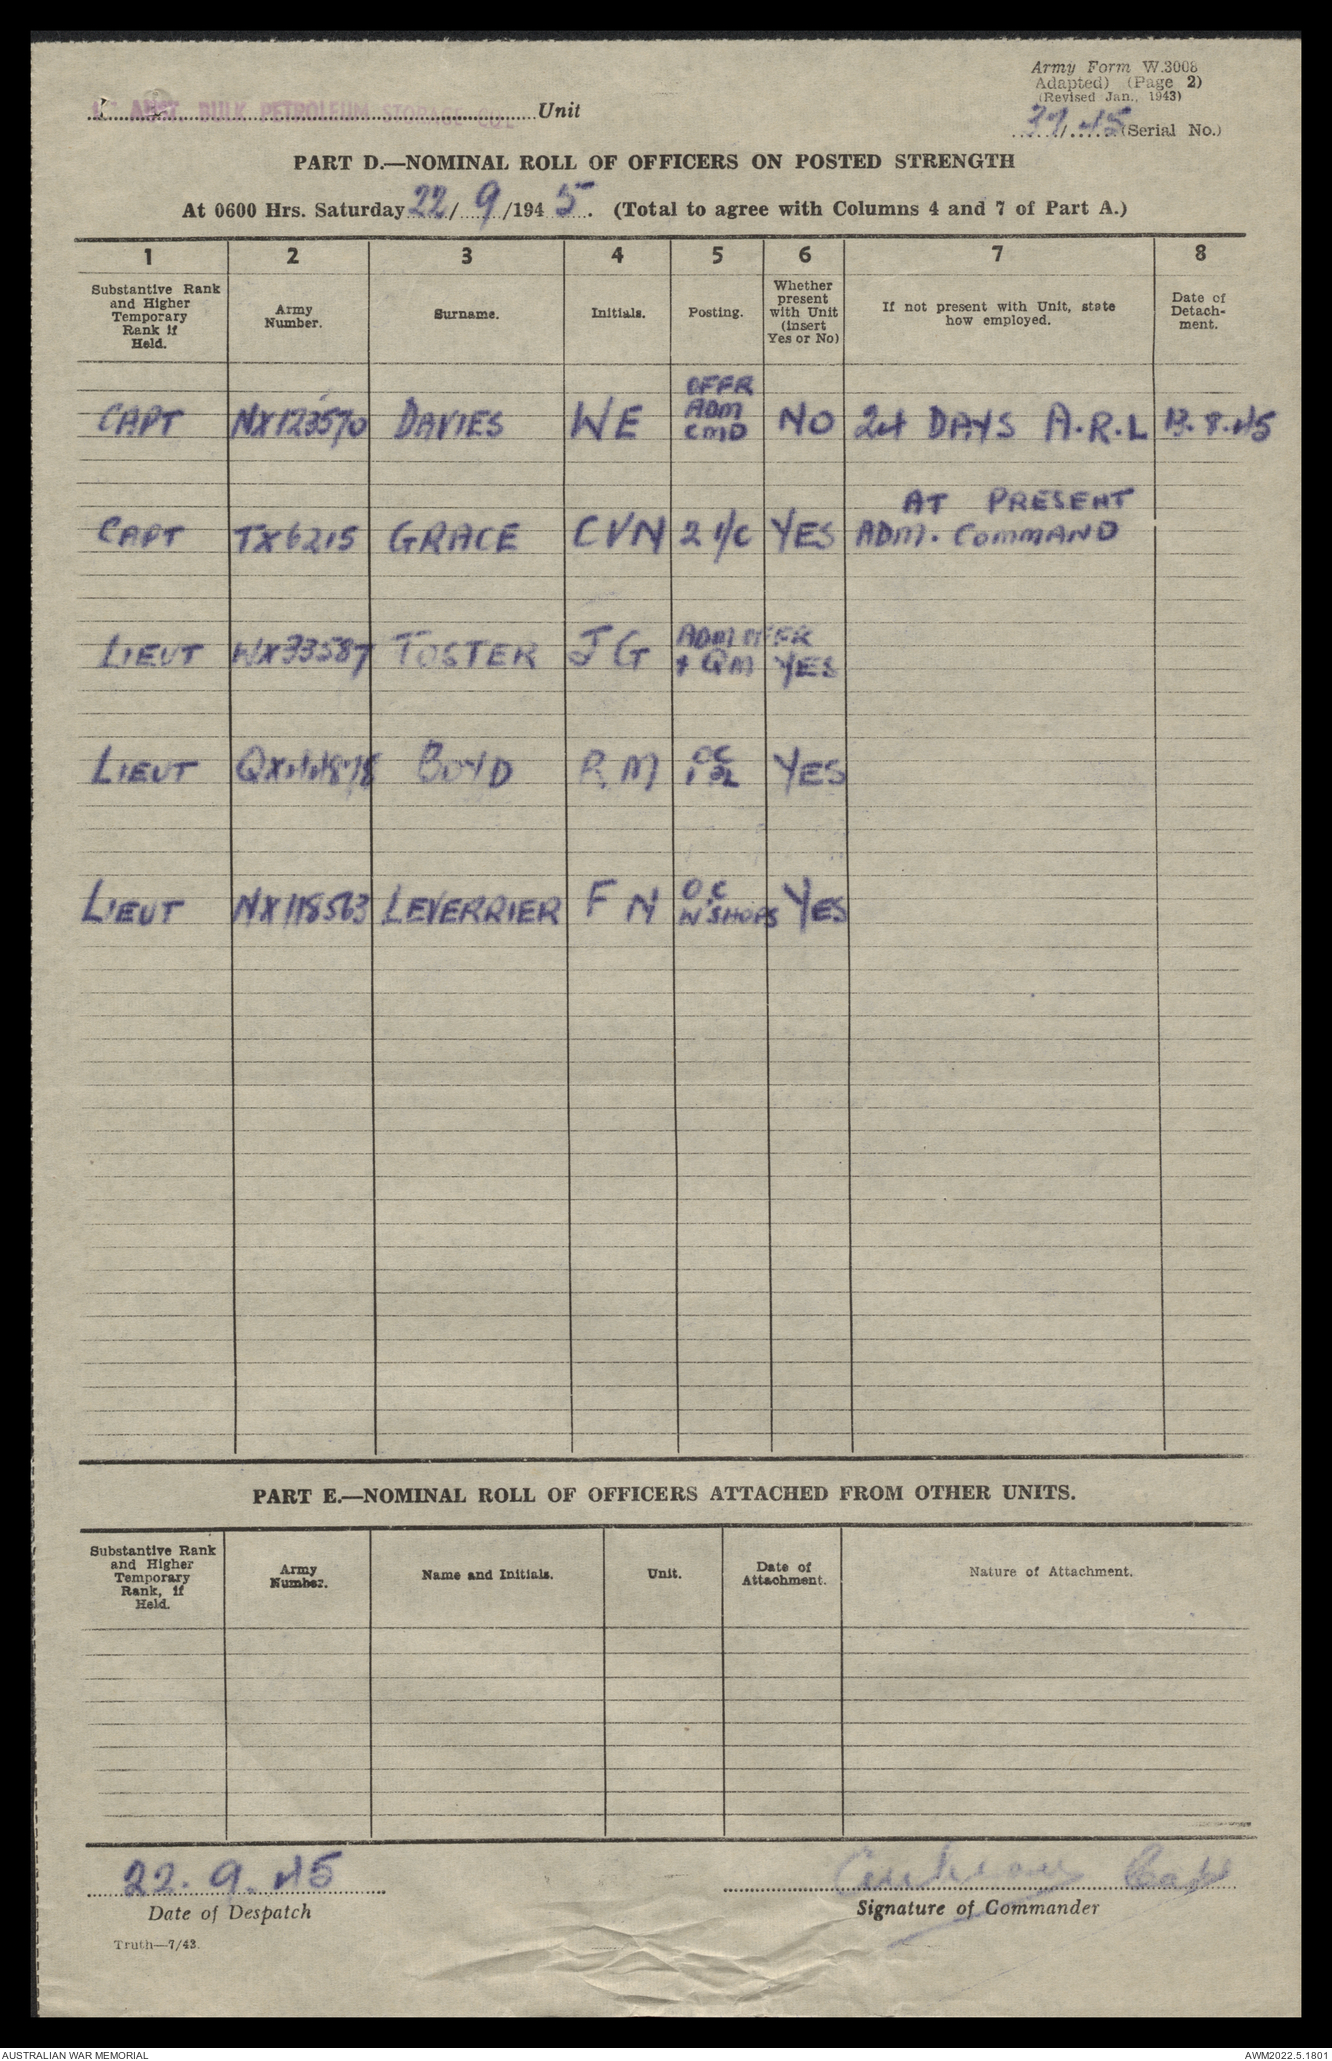 Army Form W.3008
Adapted) (Page 2)
(Revised Jan., 1943)
AUST. BULK PETROLEUM STORAGE COY Unit
37/45 (Serial No.)
PART D.—NOMINAL ROLL OF OFFICERS ON POSTED STRENGTH
At 0600 Hrs. Saturday 22/9/1945. (Total to agree with Columns 4 and 7 of Part A.)
1 2 3 4 5 6 7 8
Substantive Rank and Higher Temporary Rank if Held. Army Number. Surname. Initials. Posting. Whether present with Unit (insert Yes or No) If not present with Unit, state how employed. Date of Detach-ment.
CAPT NX123570 DAVIES WE OFFR ADM CMD NO 24 DAYS A.R.L 13.8.45
CAPT TX6215 GRACE CVN 2 I/C YES AT PRESENT ADM. COMMAND
LIEUT WX33587 FOSTER JG ADM OFFR + QM YES
LIEUT QX44878 BOYD RM OC YES
LIEUT NX118563 LEVERRIER FN O.C W'SHOPS YES
PART E.—NOMINAL ROLL OF OFFICERS ATTACHED FROM OTHER UNITS.
Substantive Rank and Higher Temporary Rank, if Held. Army Number. Name and Initials. Unit. Date of Attachment. Nature of Attachment.
22.9.45 Capt
Date of Despatch Signature of Commander
Truth—7/43.
AUSTRALIAN WAR MEMORIAL AWM2022.5.1801